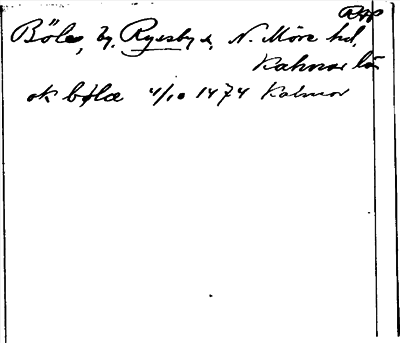 RAP
Böle, by, Ryssby s, N. Möre hd,
Kalmar län
ok bøle 4/10 1474 Kalmar